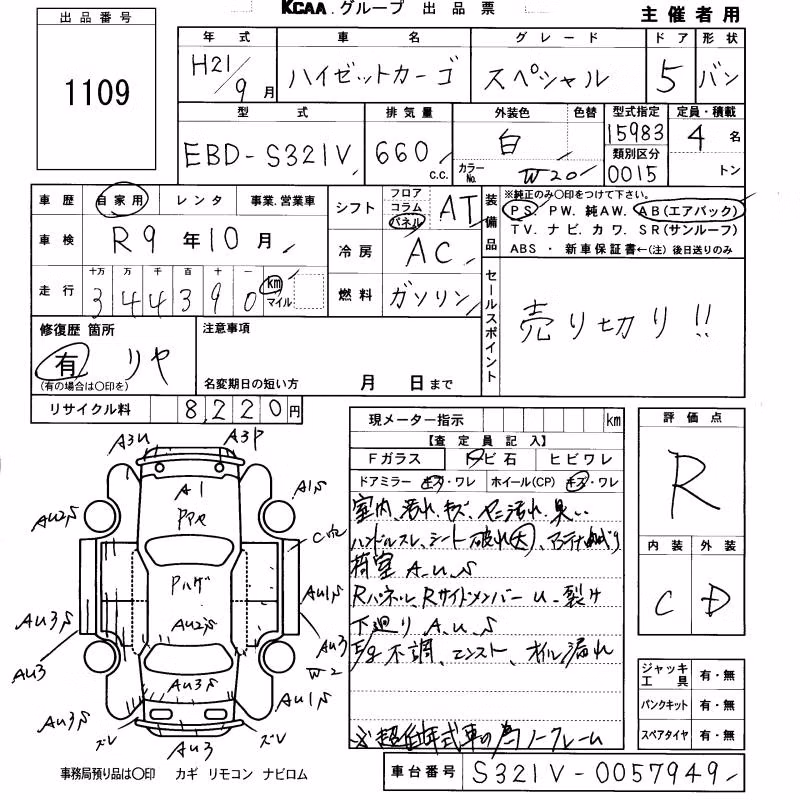 KCAA.グループ 出品票
主催者用
出品番号
1109
年式 車名 グレード ドア 形状
H21/9月 ハイゼットカーゴ スペシャル 5 バン
型式 排気量 外装色 色替 型式指定 定員・積載
EBD-S321V 660 c.c. 白 15983 4名
類別区分
カラーNo. W20 0015 トン
車歴 自家用 レンタ 事業.営業車
シフト フロア コラム パネル AT
車検 R9年10月
冷房 AC
走行 十万 万 千 百 十 一
344390 km マイル
燃料 ガソリン
装備品
※純正のみ〇印をつけて下さい。
PS. PW. 純AW. AB(エアバック)
TV. ナビ. カワ. SR(サンルーフ)
ABS ・ 新車保証書←(注) 後日送りのみ
セールスポイント
売り切り!!
修復歴 箇所
有 リヤ
(有の場合は〇印を)
注意事項
名変期日の短い方 月 日まで
リサイクル料 8,220円
現メーター指示 km
【査定員記入】
Fガラス トビ石 ヒビワレ
ドアミラー キズ・ワレ ホイール(CP) キズ・ワレ
室内、汚れ、キズ、ヤニ汚れ、臭い
ハンドルスレ、シート破れ大、
荷室 A.U.S
Rパネル、Rサイドメンバー U.裂け
下廻り A.U.S
E/g不調、エンスト、オイル漏れ
※超低年式車の為ノークレーム
評価点
R
内装 外装
C D
ジャッキ工具 有・無
パンクキット 有・無
スペアタイヤ 有・無
A3U A3P
A1
AU2S A1S
AU2S
AU1S
AU3S AU3
AU3 W2
AU3S
AU3S AU1S
ズレ AU3 ズレ
事務局預り品は〇印 カギ リモコン ナビロム
車台番号 S321V-0057949